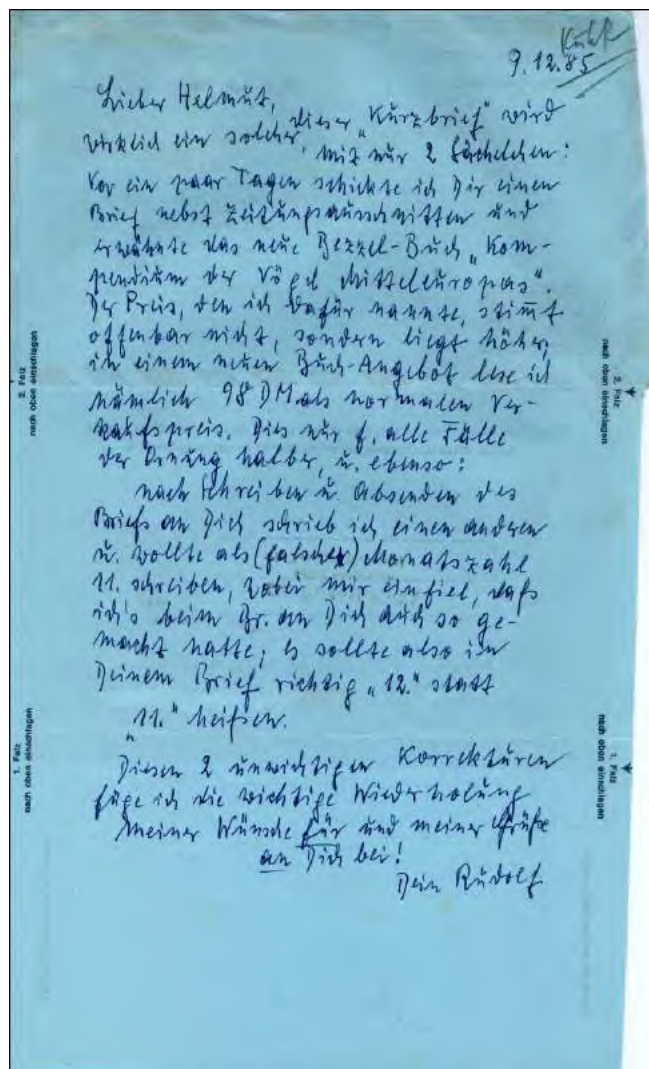 Kühk
9.12.85
Lieber Helmut,
dieser „Kurzbrief" wird
wirklich ein solcher,
mit nur 2 Sächelchen:
Vor ein paar Tagen schickte ich Dir einen
Brief nebst Zeitungsausschnitten und
erwähnte das neue Bezzel-Buch „Kom-
pendium der Vögel Mitteleuropas".
Der Preis, den ich dafür nannte, stimmt
offenbar nicht, sondern liegt höher,
in einem neuen Buch-Angebot lese ich
nämlich 98 DM als normalen Ver-
kaufspreis. Dies nur f. alle Fälle
der Ornung halber, u. ebenso:
nach Schreiben u. Absenden des
Briefs an Dich schrieb ich einen anderen
u. wollte als (falsche) Monatszahl
11. schreiben, wobei mir einfiel, daß
ich's beim Br. an Dich auch so ge-
macht hatte; es sollte also in
Deinem Brief richtig „12." statt
„11." heißen.
Diesen 2 unwichtigen Korrekturen
füge ich die wichtige Wiederholung
meiner Wünsche für und meiner Grüße
an Dich bei!
Dein Rudolf
2. Falz
nach oben einschlagen
1. Falz
nach oben einschlagen
2. Falz
nach oben einschlagen
1. Falz
nach oben einschlagen